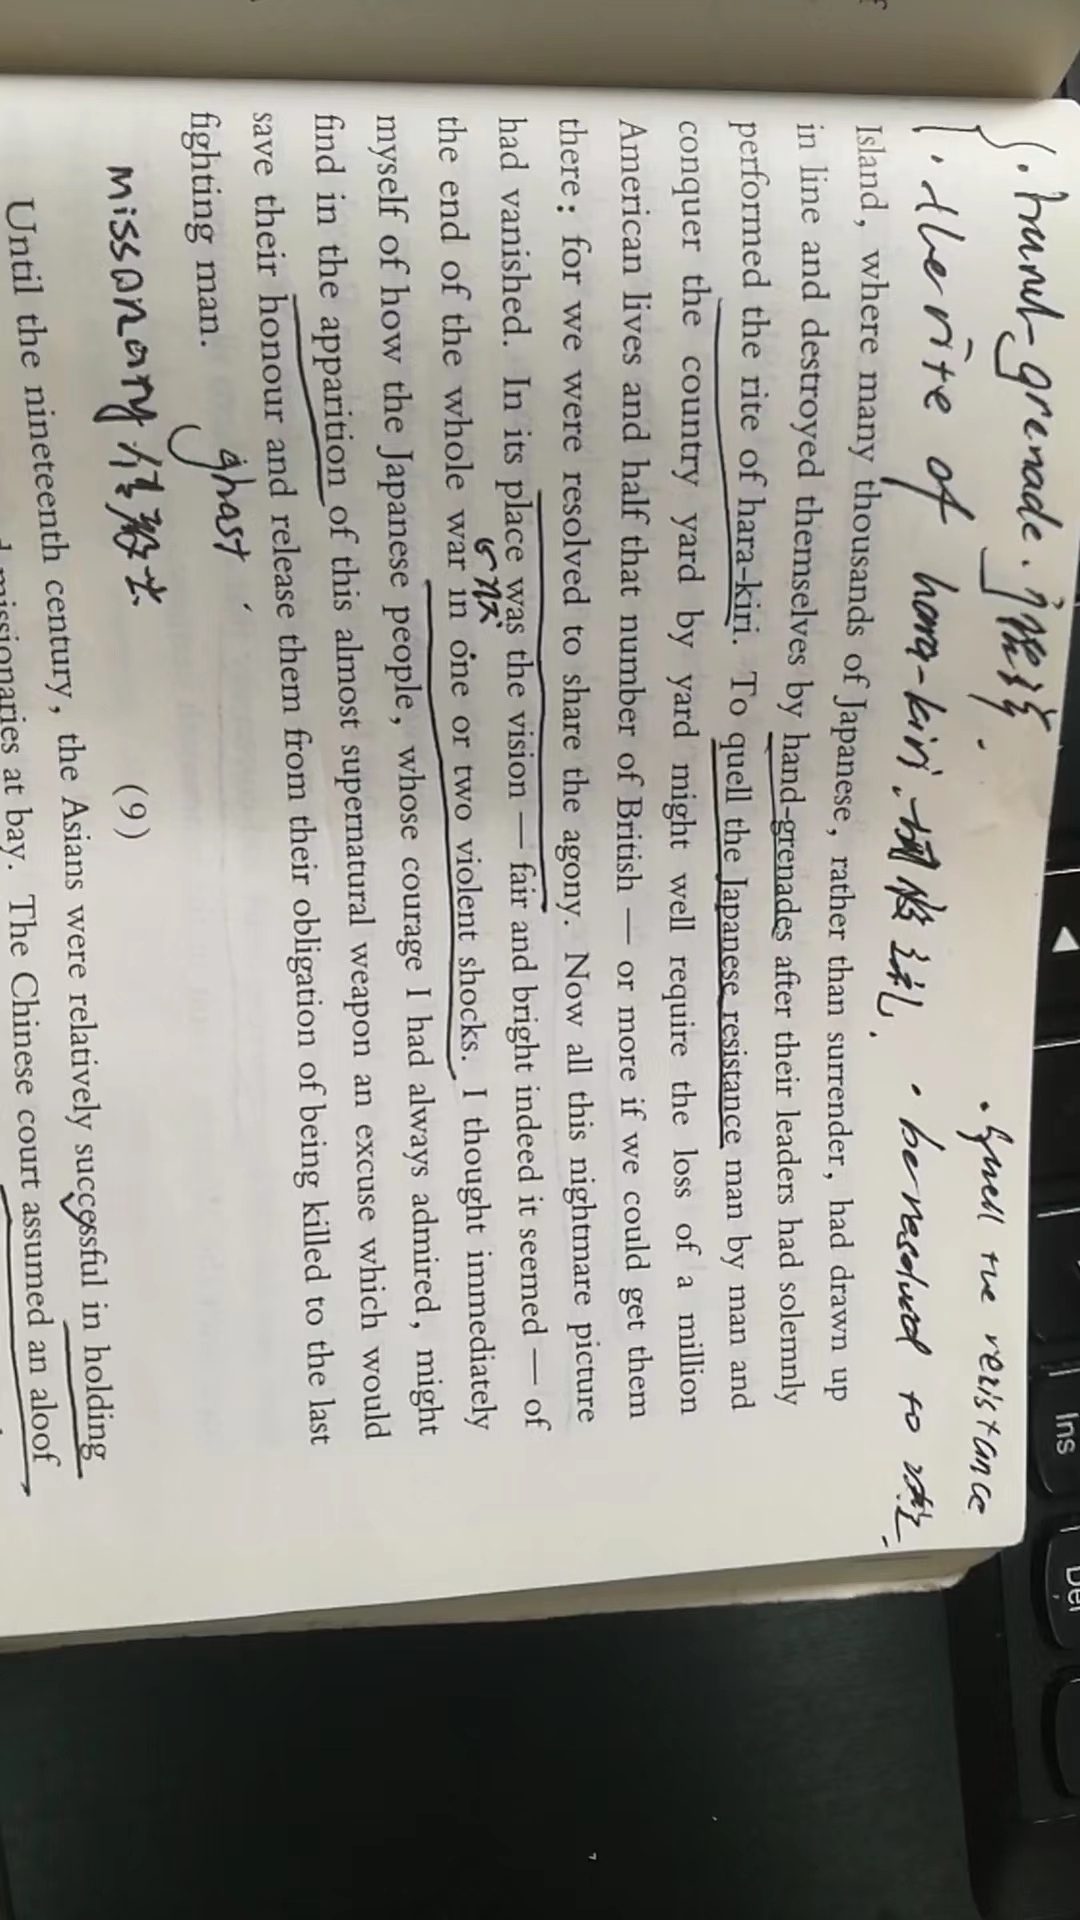 hand-grenade. 手榴弹.
· the rite of hara-kiri. 切腹礼. · be reduced to
· quell the resistance
Island, where many thousands of Japanese, rather than surrender, had drawn up
in line and destroyed themselves by hand-grenades after their leaders had solemnly
performed the rite of hara-kiri. To quell the Japanese resistance man by man and
conquer the country yard by yard might well require the loss of a million
American lives and half that number of British — or more if we could get them
there: for we were resolved to share the agony. Now all this nightmare picture
had vanished. In its place was the vision — fair and bright indeed it seemed — of
the end of the whole war in one or two violent shocks. I thought immediately
myself of how the Japanese people, whose courage I had always admired, might
find in the apparition of this almost supernatural weapon an excuse which would
save their honour and release them from their obligation of being killed to the last
fighting man.
ghost
missonary 传教士
(9)
Until the nineteenth century, the Asians were relatively successful in holding
missionaries at bay. The Chinese court assumed an aloof
Ins
Del